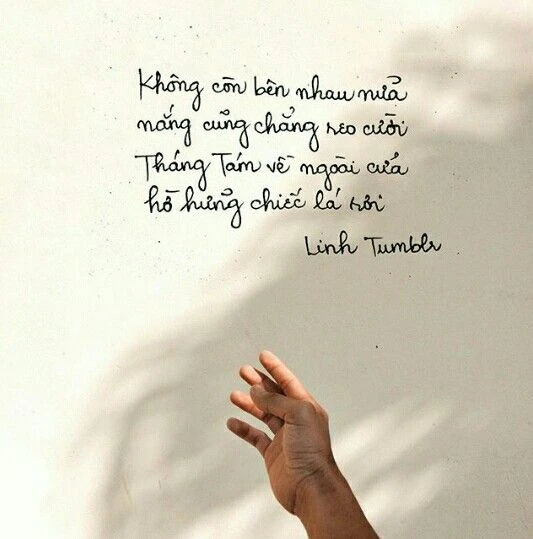 Không còn bên nhau nữa
nắng cũng chẳng reo cười
Tháng Tám về ngoài cửa
hờ hững chiếc lá rơi
Linh Tumblr